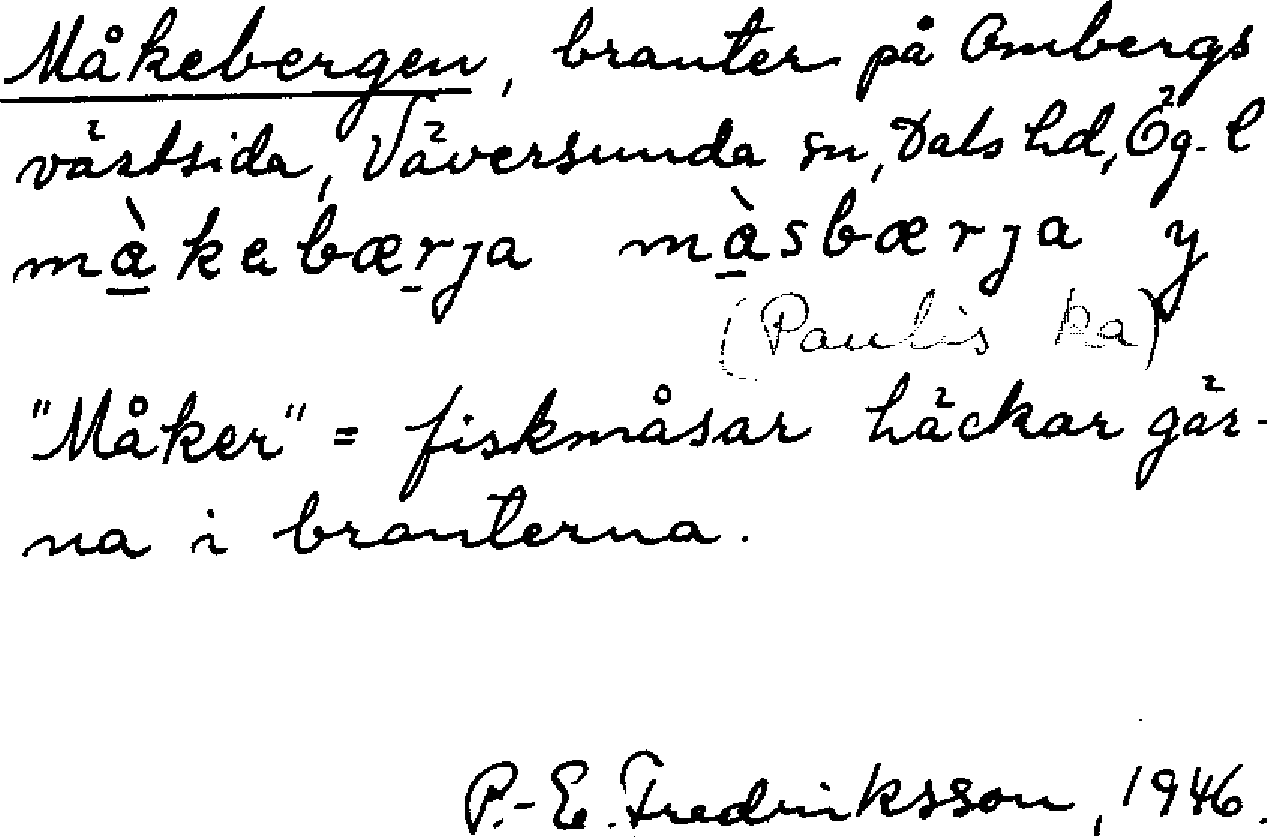 Måkebergen, branter på Ombergs
västsida, Väversunda sn, Dals hd, Ög. l
mà̱kebæṟja mà̱sbærja y
(Paulis ka)
"Måker" = fiskmåsar häckar gär-
na i branterna.
P.-E. Fredriksson, 1946.